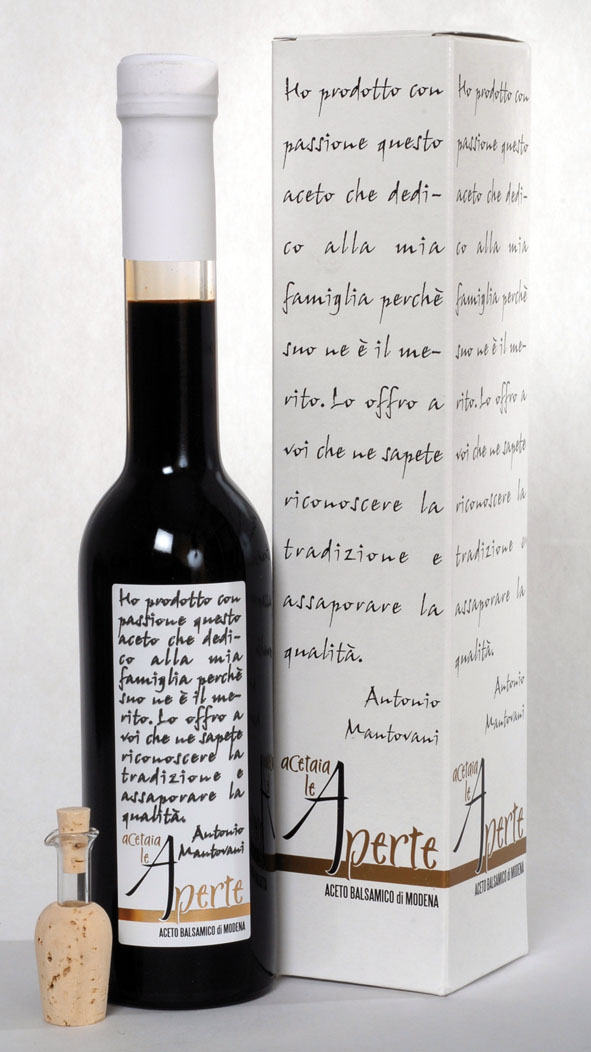 Ho prodotto con
passione questo
aceto che dedi-
co alla mia
famiglia perchè
suo ne è il me-
rito. Lo offro a
voi che ne sapete
riconoscere la
tradizione e
assaporare la
qualità.
Antonio
Mantovani
acetaia
le
Aperte
ACETO BALSAMICO di MODENA
Ho prodotto con
passione questo
aceto che dedi-
co alla mia
famiglia perchè
suo ne è il me-
rito. Lo offro a
voi che ne sapete
riconoscere la
tradizione e
assaporare la
qualità.
Antonio
Mantovani
acetaia
le
Aperte
ACETO BALSAMICO di MODENA
Ho prodotto con
passione questo
aceto che dedi-
co alla mia
famiglia perchè
suo ne è il me-
rito. Lo offro a
voi che ne sapete
riconoscere la
tradizione e
assaporare la
qualità.
Antonio
Mantovani
acetaia
le
Aperte
ACETO BALSAMICO di MODENA